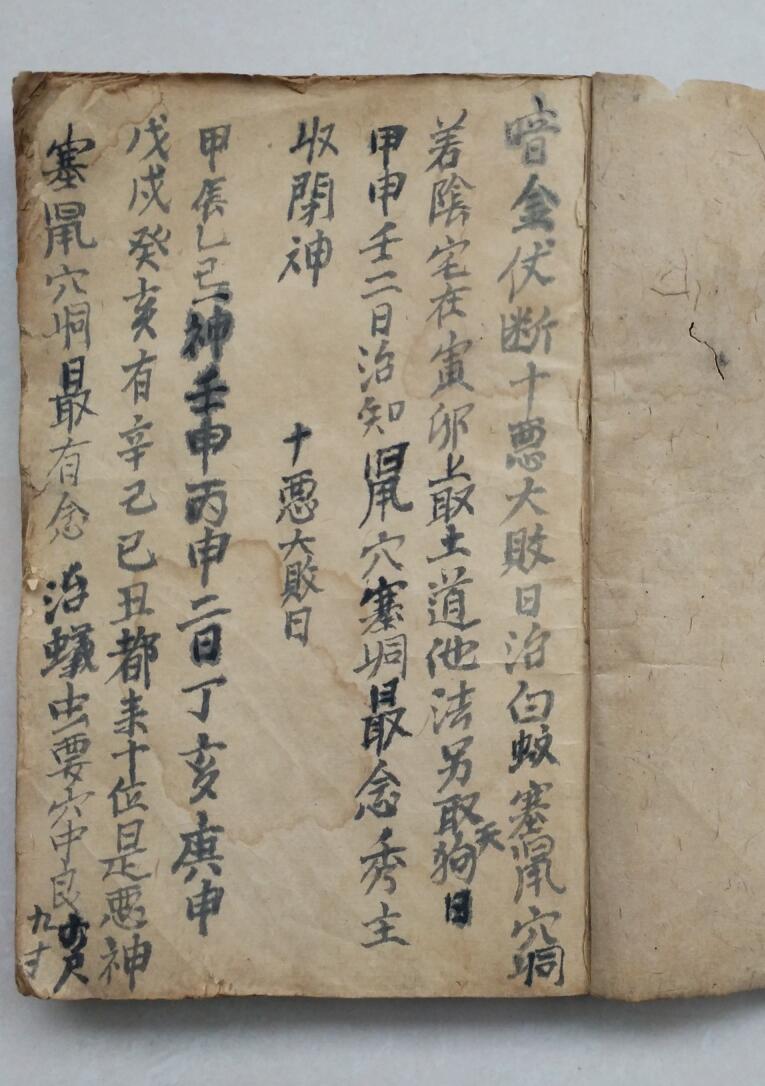 暗金伏断十悪大敗日治白蚁塞鼠穴峒
若陰宅在寅卯上取土道他法另取天狗日
甲申壬二日治知鼠穴塞峒最念秀主
收閉神　十悪大敗日
甲辰乙巳神壬申丙申二日丁亥庚申
戊戌癸亥有辛己巳丑都来十位是悪神
塞鼠穴峒最有念　治蟻虫要穴中良
九寸